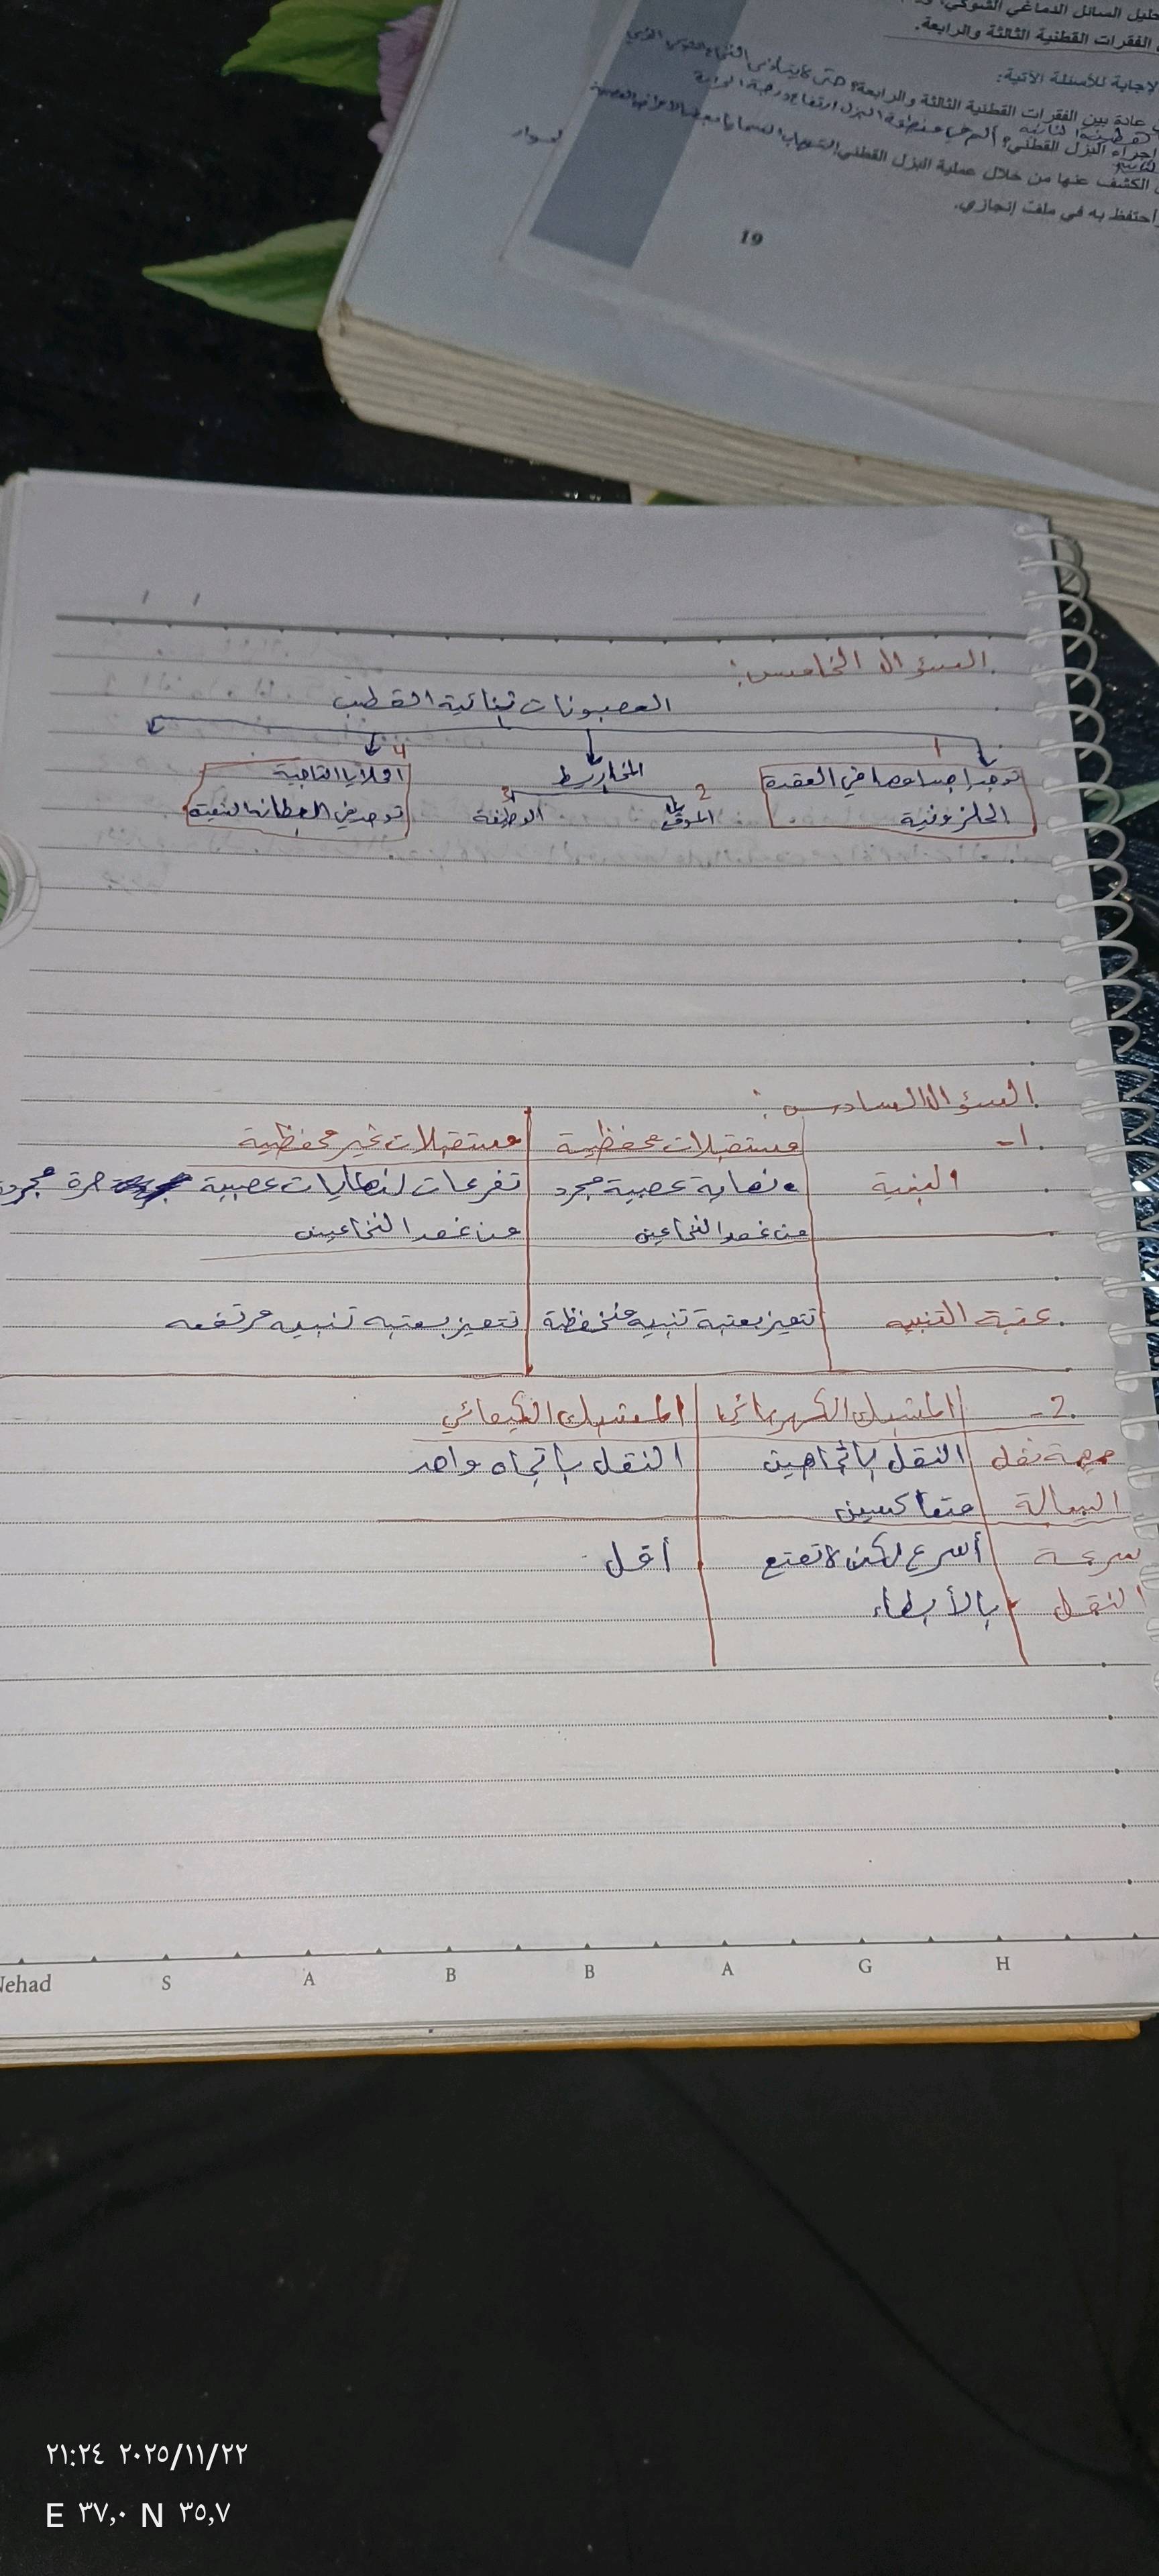 الفقرات القطنية الثالثة والرابعة.
عادة بين الفقرات القطنية الثالثة والرابعة؟
إجراء البزل القطني؟
الكشف عنها من خلال عملية البزل القطني
أحتفظ به في ملف إنجازي.
19
السؤال الخامس:
العصبونات ثنائية القطب
1
توجد أجسامها في العقدة
الحلزونية
المخاريط
2
الموقع
3
الوظيفة
4
توجد في البطانة
السؤال السادس:
1-
مستقبلات محفظية
مستقبلات غير محفظية
البنية
نهاية عصبية مجرد
من غمد النخاعين
تفرعات لنهايات عصبية حرة مجردة
من غمد النخاعين
عتبة التنبيه
تتميز بعتبة تنبيه منخفظة
تتميز بعتبه تنبيه مرتفعه
2-
المشبك الكهربائي
المشبك الكيميائي
نقل
السيالة
النقل باتجاهين
متعاكسين
النقل باتجاه واحد
سرعة
النقل
أسرع لكن لا تتمتع
بالأبطاء
أقل
Nehad S A B B A G H
٢١:٢٤ ٢٠٢٥/١١/٢٢
E ٣٧,٠ N ٣٥,٧